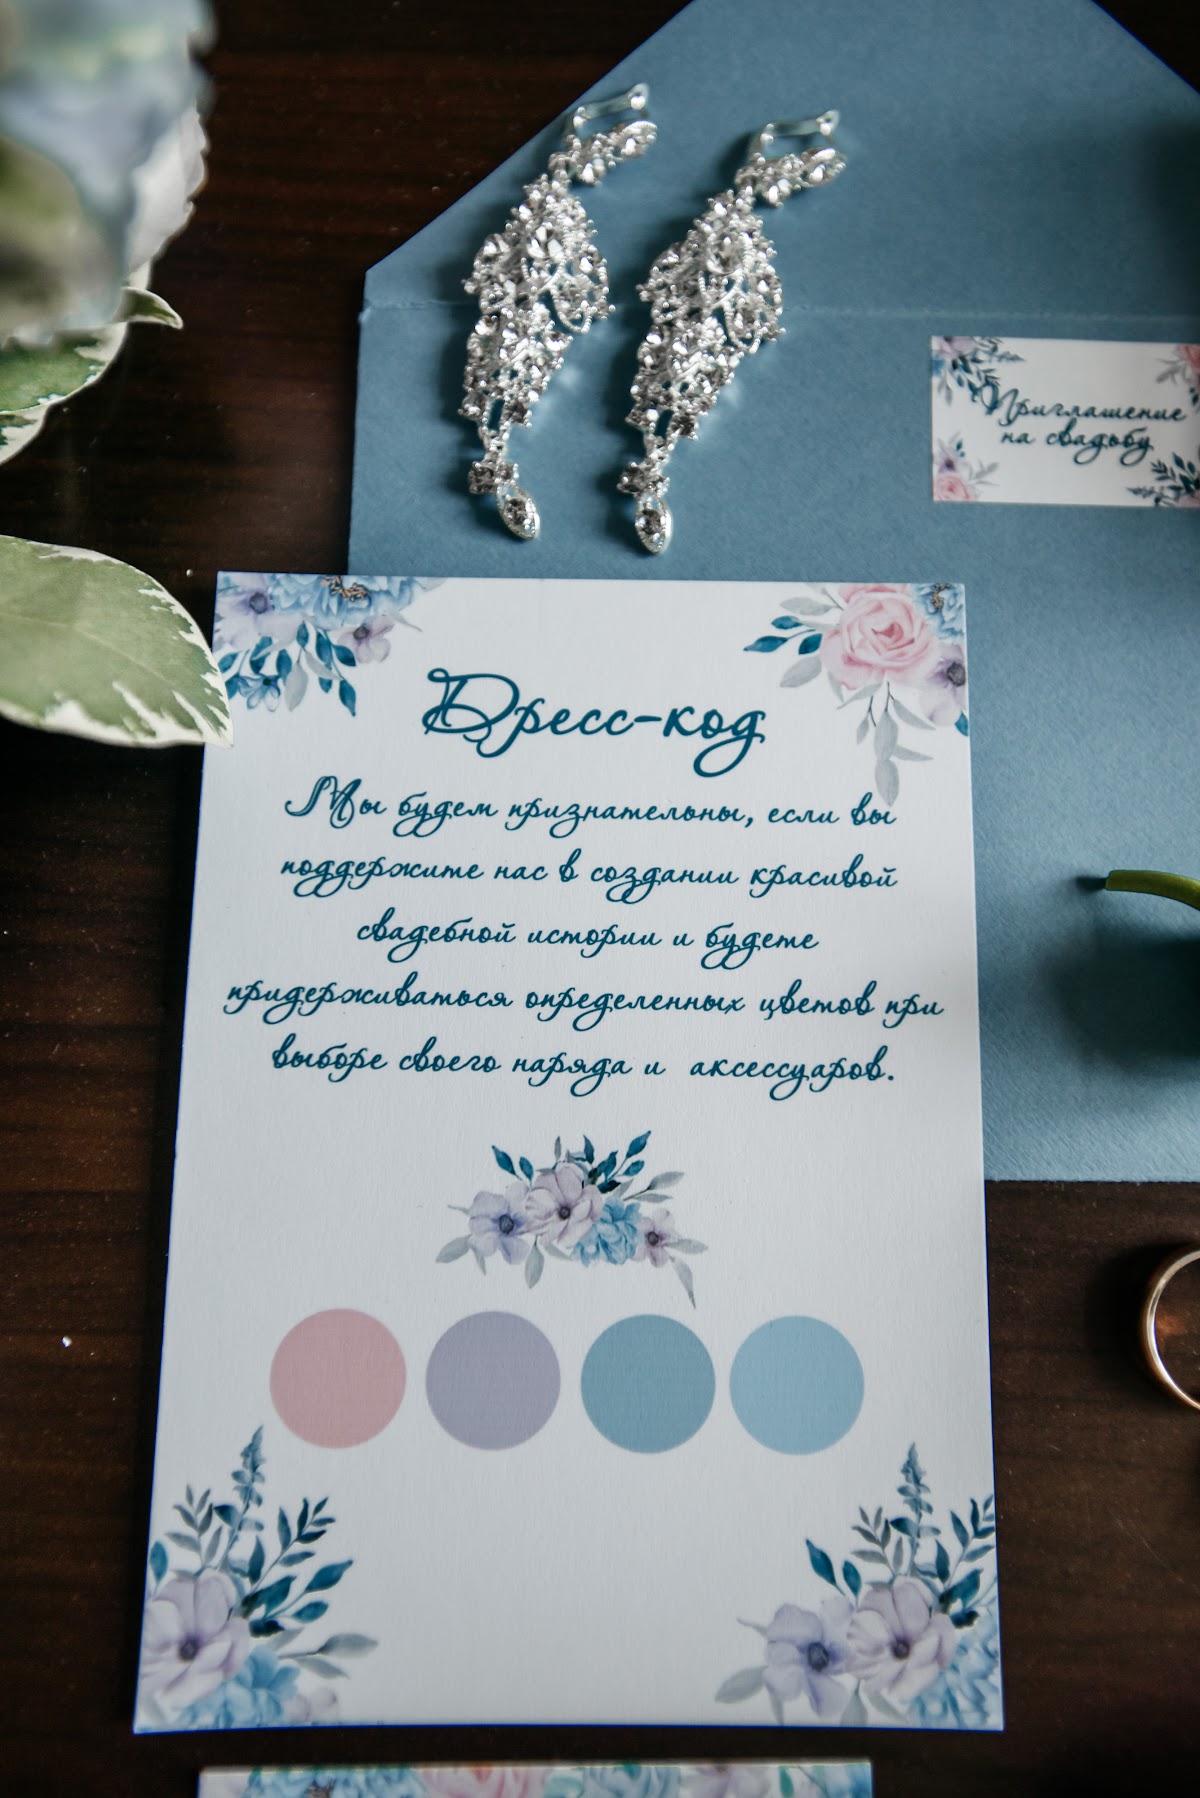 Приглашение
на свадьбу
Дресс-код
Мы будем признательны, если вы
поддержите нас в создании красивой
свадебной истории и будете
придерживаться определенных цветов при
выборе своего наряда и аксессуаров.